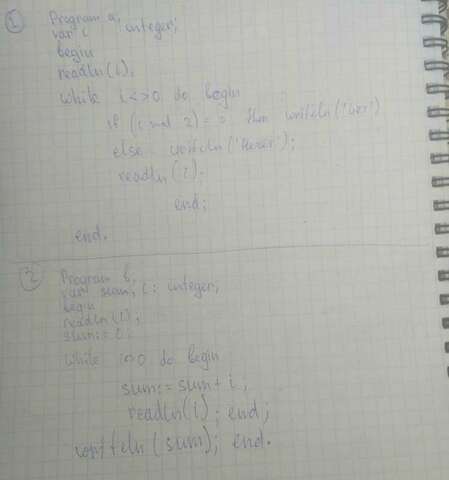 1
Program a,
var i : integer;
begin
readln(i);
while i<>0 do begin
if (i mod 2)=0 then writeln('Чет')
else writeln('Нечет');
readln(i);
end;
end.
2
Program b,
var sum, i: integer;
begin
readln(i);
sum:=
while i<>0 do begin
sum:=sum+i;
readln(i); end;
writeln(sum); end.